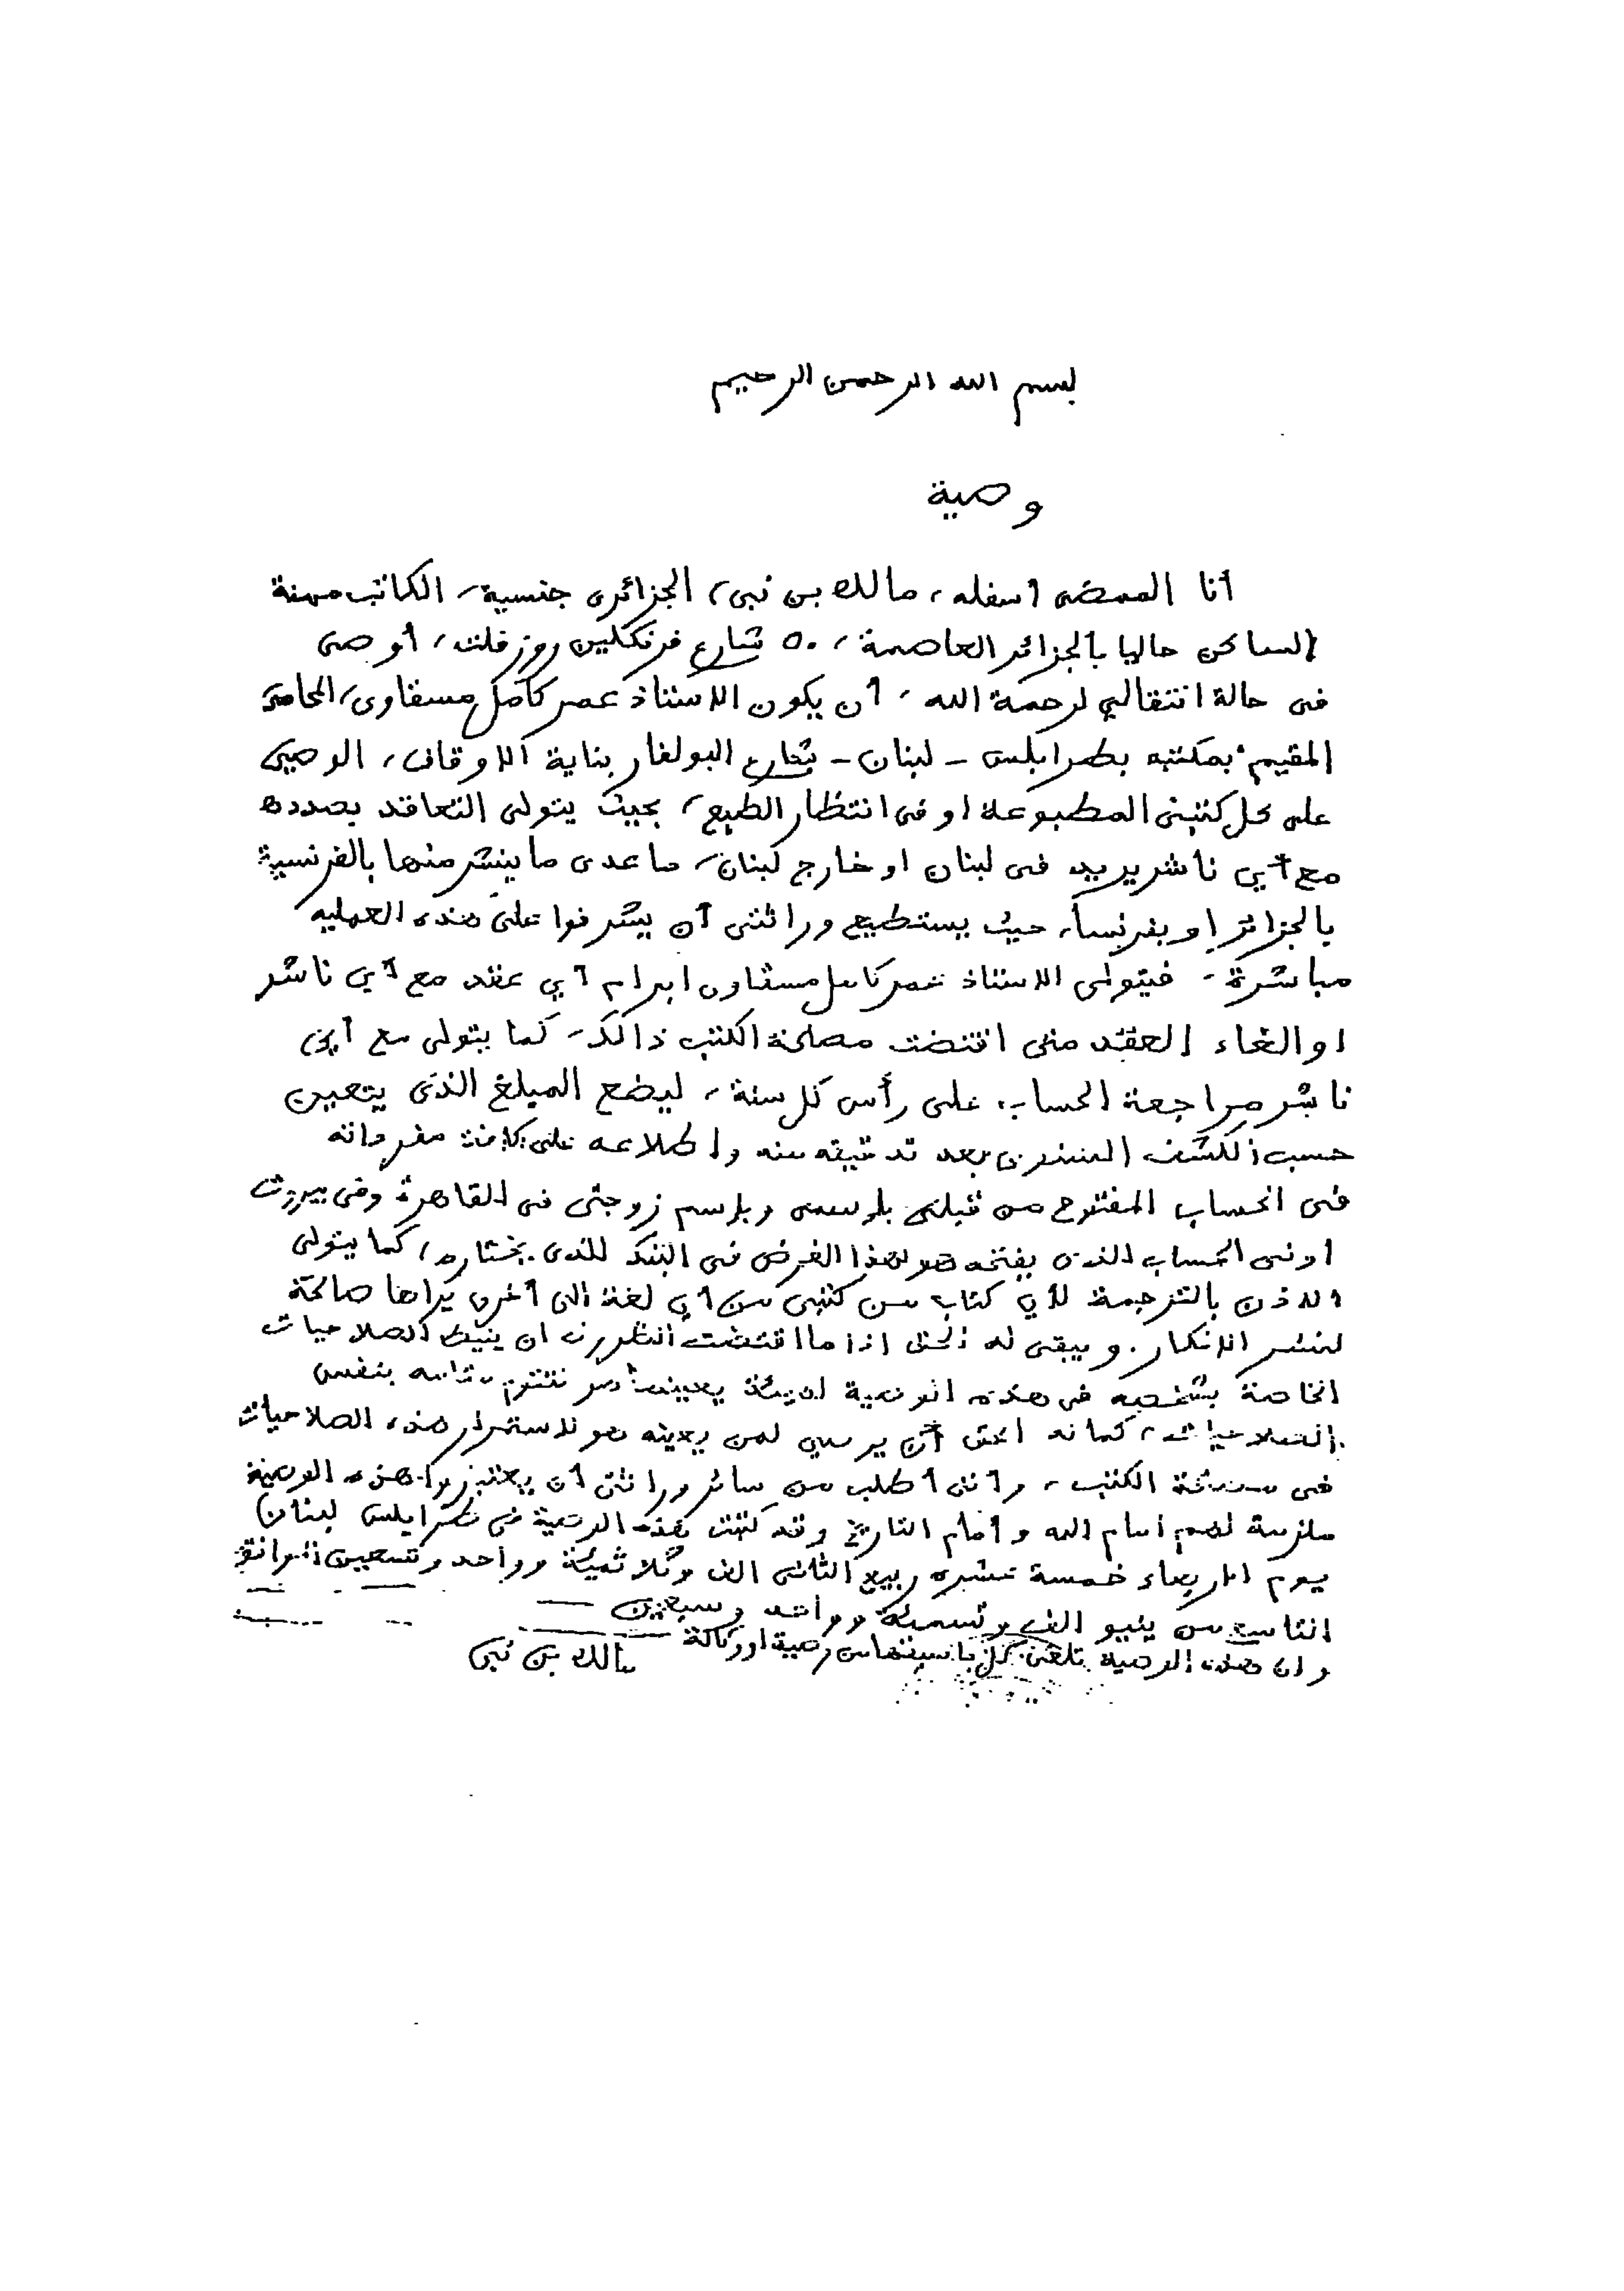 بسم الله الرحمن الرحيم
وصية
أنا الممضى أسفله، مالك بن نبى، الجزائرى جنسية، الكاتب مهنة
الساكن حاليا بالجزائر العاصمة، ٥٠ شارع فرنكلين روزفلت، أوصى
فى حالة انتقالي لرحمة الله، أن يكون الاستاذ عمر كامل مسقاوى، المحامى
المقيم بمكتبه بطرابلس - لبنان - شارع البولفار بناية الاوقاف، الوصي
على كل كتبى المطبوعة او فى انتظار الطبع، بحيث يتولى التعاقد بصدده
مع أي ناشر يريد فى لبنان او خارج لبنان، ما عدى ما ينشر منها بالفرنسية
بالجزائر او بفرنسا، حيث يستطيع وراثتى أن يشرفوا على هذه العملية
مباشرة، فيتولى الاستاذ عمر كامل مسقاوى ابرام أي عقد مع أي ناشر
او الغاء العقد متى اقتضت مصلحة الكتب ذالك، كما يتولى مع أي
ناشر مراجعة الحساب على رأس كل سنة، ليضع المبلغ الذى يتعين
حسب الكشف السنوى بعد تدقيقه منه واطلاعه على كافة مفرداته
فى الحساب المفتوح من قبلى باسمى وباسم زوجتى فى القاهرة وفى بيروت
او فى الحساب الذى يفتحه هو لهذا الغرض فى البنك الذى يختاره، كما يتولى
الاذن بالترجمة لأي كتاب من كتبى من أي لغة الى أخرى يراها صالحة
لنشر الافكار. ويبقى له الحق اذا ما اقتضت الظروف ان ينيط الصلاحيات
الخاصة بشخصه فى هذه الوصية لهيئة يعينها هو تقوم مقامه بنفس
الصلاحيات، كما له الحق أن يوصي لمن يعينه هو لاستمرار هذه الصلاحيات
فى مصلحة الكتب، واننى أطلب من سائر وراثتى أن يعتبروا هذه الوصية
ملزمة لهم امام الله وأمام التاريخ وقد كتبت هذه الوصية فى طرابلس لبنان
يوم الاربعاء خمسة عشره ربيع الثانى الف وثلاثمئة وواحد وتسعين الموافق
التاسع من ينيو الف وتسمئة وواحد وسبعين
وان هذه الوصية تلغى كل ما سبقها من وصية او وكالة
مالك بن نبى